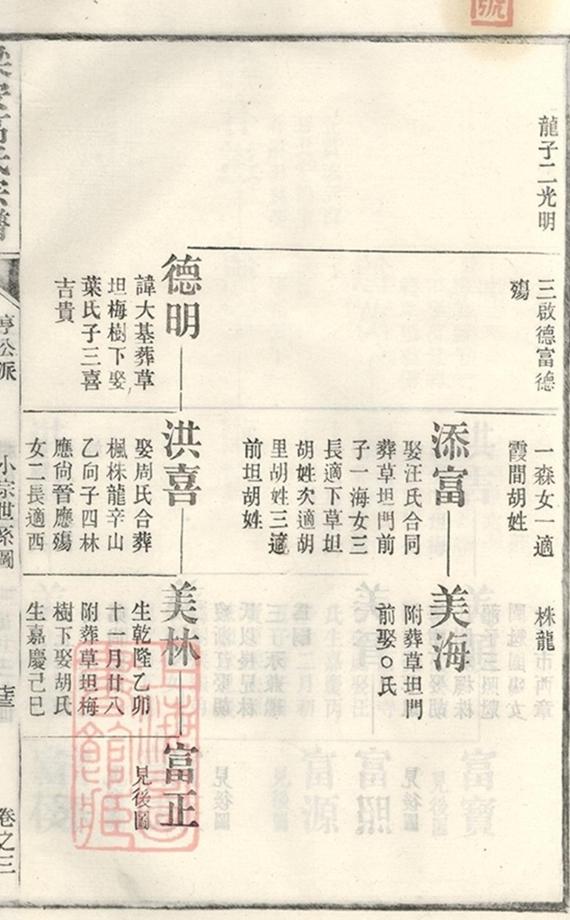 龍子二光明
三啟德富德
殤
一森女一適
霞間胡姓
株龍
添富
娶汪氏合同
葬草坦門前
子一海女三
長適下草坦
胡姓次適胡
里胡姓三適
前坦胡姓
美海
附葬草坦門
前娶○氏
德明
諱大基葬草
坦梅樹下娶
葉氏子三喜
吉貴
洪喜
娶周氏合葬
楓株龍辛山
乙向子四林
應尙晉應殤
女二長適西
美林
生乾隆乙卯
十一月廿八
附葬草坦梅
樹下娶胡氏
生嘉慶己巳
富正
見後圖
氏宗譜
公派
小宗世系圖
卷之三